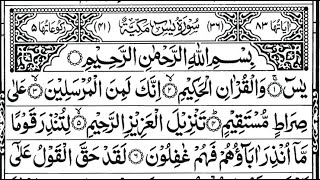 اٰیَاتُهَا ٨٣ (٣٦) سُوْرَةُ يٰسٓ مَكِّيَّةٌ (٤١) رُكُوْعَاتُهَا ٥
بِسْمِ اللّٰهِ الرَّحْمٰنِ الرَّحِيْمِ
يٰسٓ ۚ ۝١ وَالْقُرْاٰنِ الْحَكِيْمِ ۙ ۝٢ اِنَّكَ لَمِنَ الْمُرْسَلِيْنَ ۙ ۝٣ عَلٰى
صِرَاطٍ مُّسْتَقِيْمٍ ؕ ۝٤ تَنْزِيْلَ الْعَزِيْزِ الرَّحِيْمِ ۙ ۝٥ لِتُنْذِرَ قَوْمًا
مَّاۤ اُنْذِرَ اٰبَآؤُهُمْ فَهُمْ غٰفِلُوْنَ ۝٦ لَقَدْ حَقَّ الْقَوْلُ عَلٰۤى